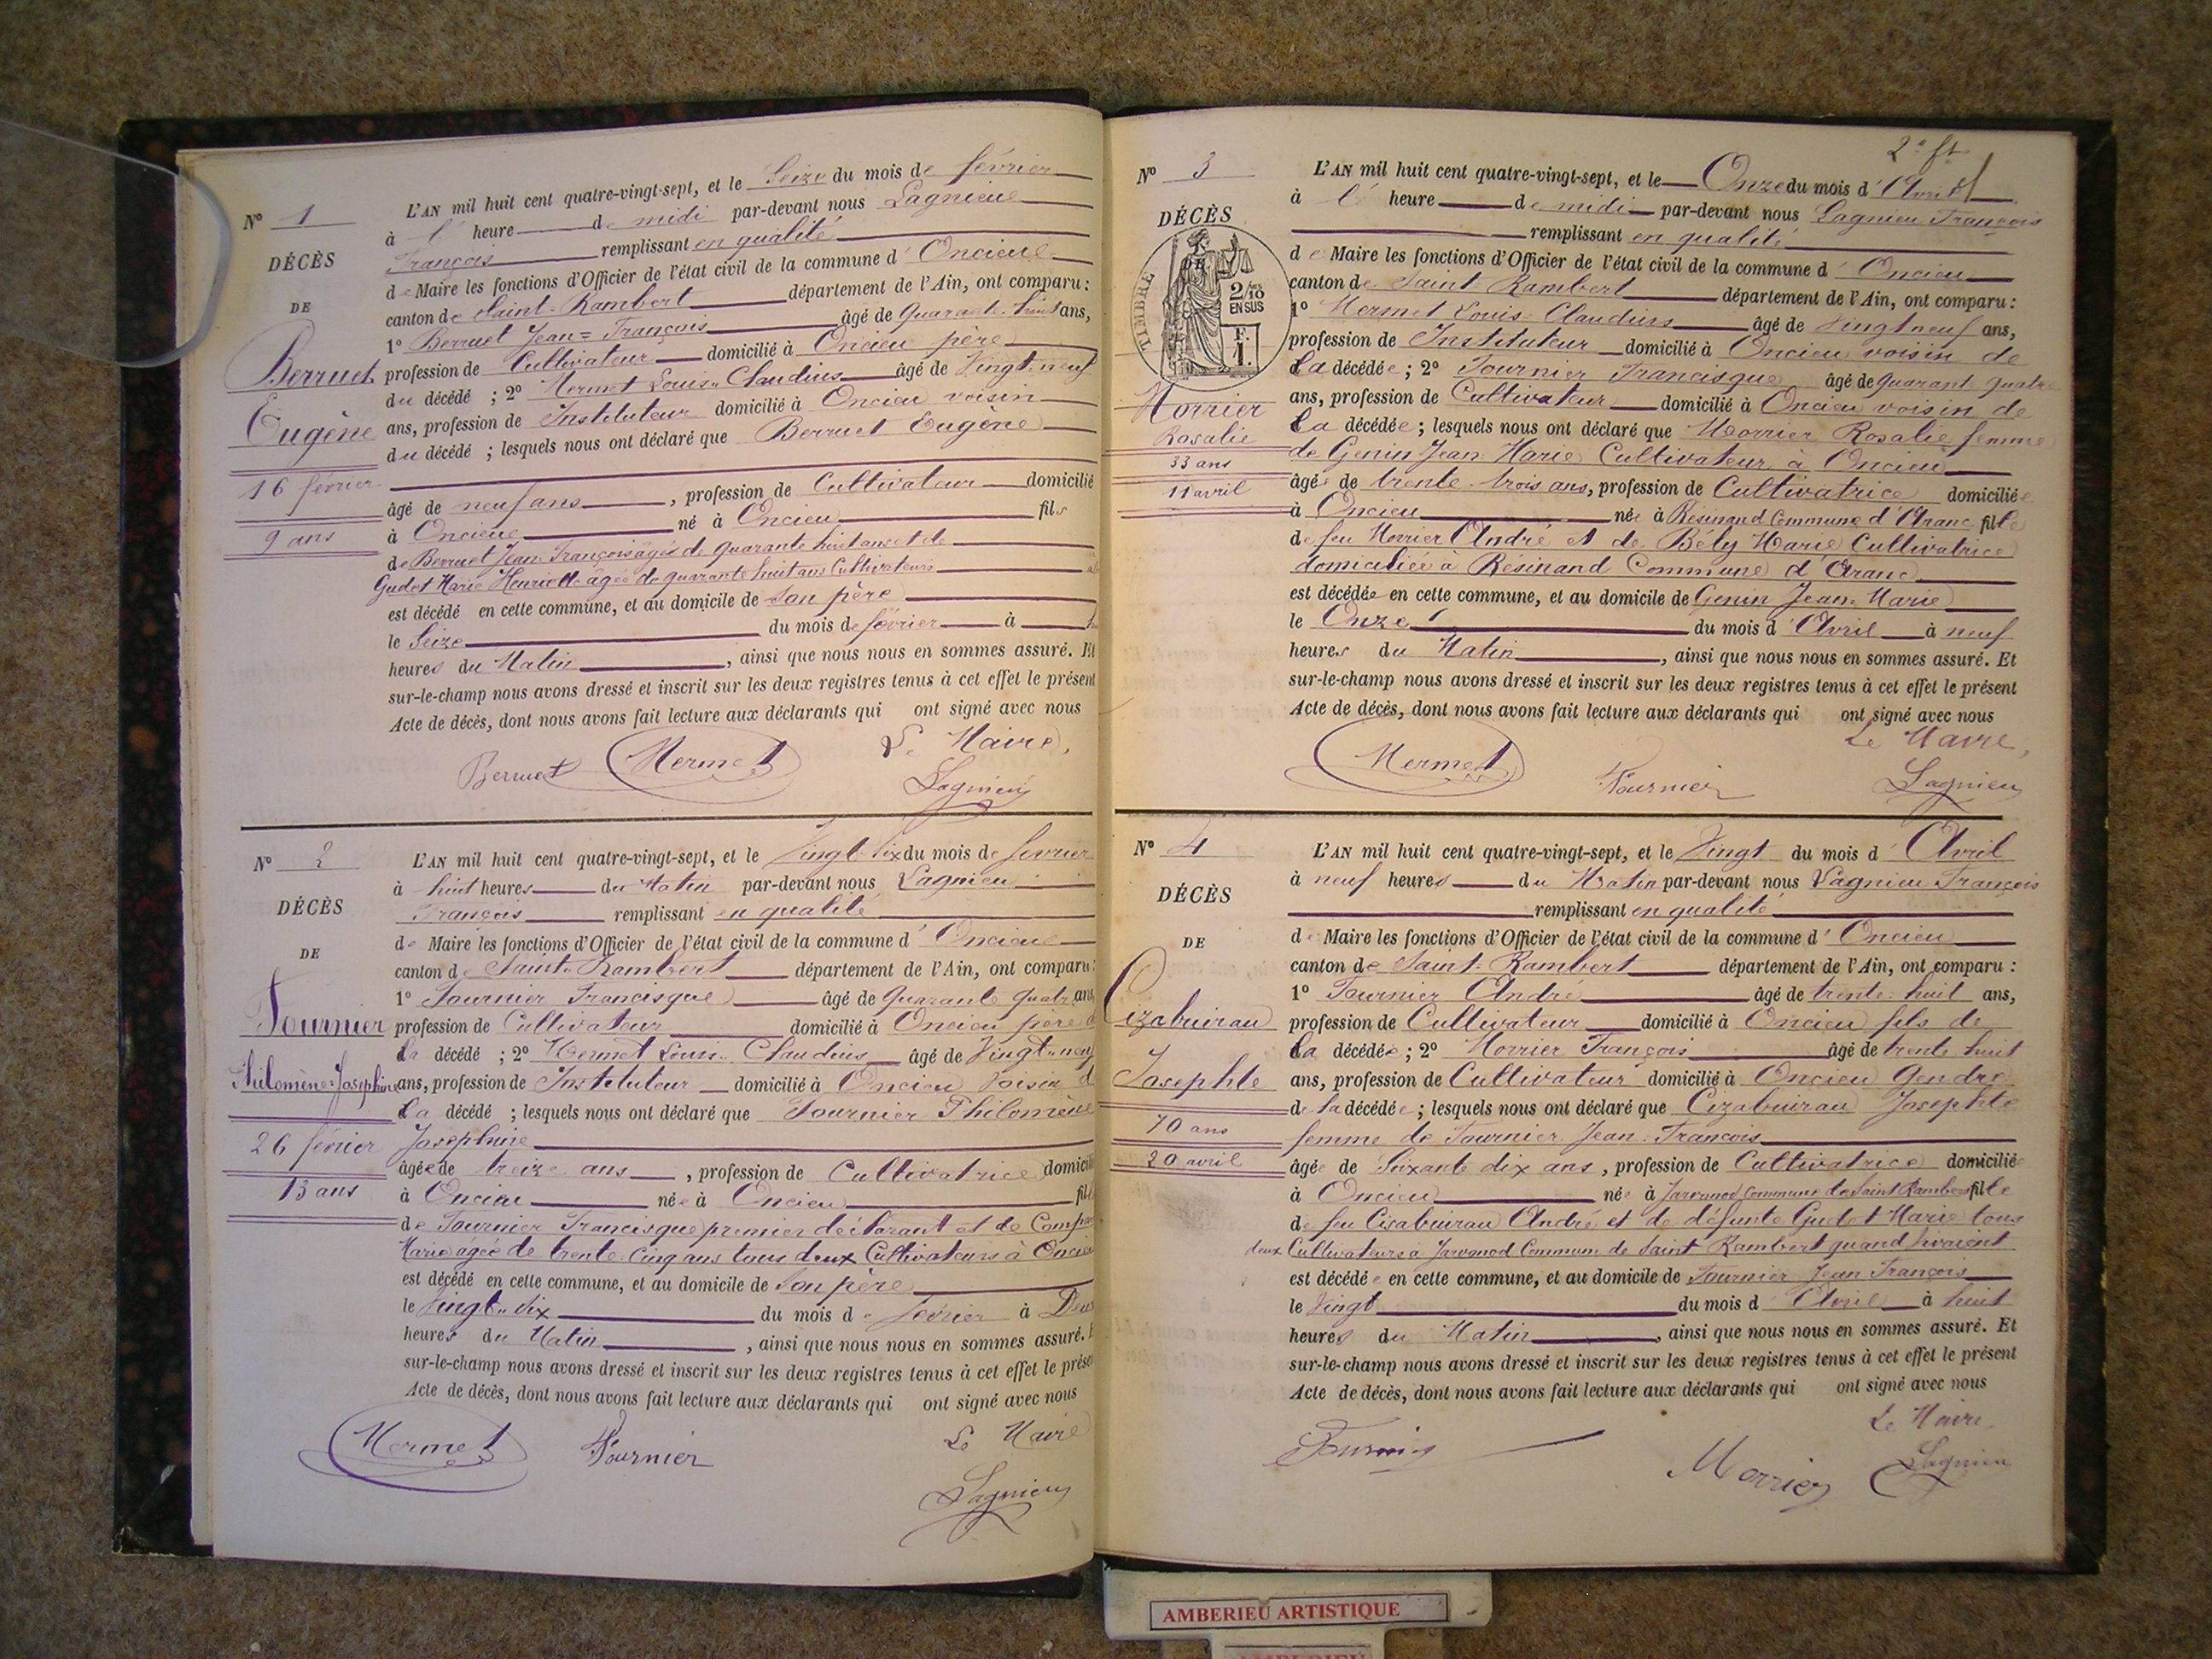 N° 1
DÉCÈS
DE
Berruet
Eugène
16 février
9 ans
L'AN mil huit cent quatre-vingt-sept, et le Seize du mois de février
à l' heure de midi par-devant nous Lagnieu
François remplissant en qualité
de Maire les fonctions d'Officier de l'état civil de la commune d' Oncieu
canton de Saint-Rambert département de l'Ain, ont comparu :
1° Berruet Jean=François âgé de Quarante-huit ans,
profession de Cultivateur domicilié à Oncieu père
du décédé ; 2° Mermet Louis-Claudius âgé de Vingt-neuf
ans, profession de Instituteur domicilié à Oncieu voisin
du décédé ; lesquels nous ont déclaré que Berruet Eugène
âgé de neuf ans, profession de Cultivateur domicilié
à Oncieu né à Oncieu fils
de Berruet Jean-François âgé de Quarante huit ans et de
Gudet Marie Henriette âgée de quarante huit ans Cultivateurs
est décédé en cette commune, et au domicile de Son père
le Seize du mois de février à
heures du Matin, ainsi que nous nous en sommes assuré. Et
sur-le-champ nous avons dressé et inscrit sur les deux registres tenus à cet effet le présent
Acte de décès, dont nous avons fait lecture aux déclarants qui ont signé avec nous
Le Maire,
Berruet Mermet
Lagnieu
N° 2
DÉCÈS
DE
Fournier
Philomène=Joséphine
26 février
13 ans
L'AN mil huit cent quatre-vingt-sept, et le Vingt-Six du mois de février
à huit heures du Matin par-devant nous Lagnieu
François remplissant en qualité
de Maire les fonctions d'Officier de l'état civil de la commune d' Oncieu
canton de Saint-Rambert département de l'Ain, ont comparu :
1° Fournier Francisque âgé de Quarante quatre ans
profession de Cultivateur domicilié à Oncieu père d
La décédé ; 2° Mermet Louis-Claudius âgé de Vingt-neuf
ans, profession de Instituteur domicilié à Oncieu Voisin d
La décédé ; lesquels nous ont déclaré que Fournier Philomène
Joséphine
âgée de treize ans, profession de Cultivatrice domicili
à Oncieu née à Oncieu fil
de Fournier Francisque premier déclarant et de
Marie âgée de trente-cinq ans tous deux Cultivateurs à Oncieu
est décédé en cette commune, et au domicile de Son père
le Vingt-Six du mois de février à Deux
heures du Matin, ainsi que nous nous en sommes assuré. E
sur-le-champ nous avons dressé et inscrit sur les deux registres tenus à cet effet le prése
Acte de décès, dont nous avons fait lecture aux déclarants qui ont signé avec nous
Mermet Fournier Le Maire
Lagnieu
2e ft
N° 3
DÉCÈS
DE
TIMBRE
2/10
EN SUS
F.
1
Morrier
Rosalie
33 ans
11 avril
L'AN mil huit cent quatre-vingt-sept, et le Onze du mois d' Avril
à l' heure de midi par-devant nous Lagnieu François
remplissant en qualité
de Maire les fonctions d'Officier de l'état civil de la commune d' Oncieu
canton de Saint-Rambert département de l'Ain, ont comparu :
1° Mermet Louis-Claudius âgé de Vingt neuf ans,
profession de Instituteur domicilié à Oncieu voisin de
La décédée ; 2° Fournier Francisque âgé de quarant quatre
ans, profession de Cultivateur domicilié à Oncieu voisin de
La décédée ; lesquels nous ont déclaré que Morrier Rosalie femme
de Genin Jean-Marie Cultivateur à Oncieu
âgée de trente-trois ans, profession de Cultivatrice domiciliée
à Oncieu née à Résinand Commune d'Aranc fille
de feu Morrier André et de Bély Marie Cultivatrice
domiciliée à Résinand Commune d'Aranc
est décédée en cette commune, et au domicile de Genin Jean-Marie
le Onze du mois d' Avril à neuf
heures du Matin, ainsi que nous nous en sommes assuré. Et
sur-le-champ nous avons dressé et inscrit sur les deux registres tenus à cet effet le présent
Acte de décès, dont nous avons fait lecture aux déclarants qui ont signé avec nous
Le Maire,
Mermet Fournier Lagnieu
N° 4
DÉCÈS
DE
Cizabuirau
Josephte
70 ans
20 avril
L'AN mil huit cent quatre-vingt-sept, et le Vingt du mois d' Avril
à neuf heures du Matin par-devant nous Lagnieu François
remplissant en qualité
de Maire les fonctions d'Officier de l'état civil de la commune d' Oncieu
canton de Saint-Rambert département de l'Ain, ont comparu :
1° Fournier André âgé de trente-huit ans,
profession de Cultivateur domicilié à Oncieu fils de
La décédée ; 2° Morrier François âgé de trente huit
ans, profession de Cultivateur domicilié à Oncieu Gendre
de la décédée ; lesquels nous ont déclaré que Cizabuirau Josephte
femme de Fournier Jean-François
âgée de Soixante dix ans, profession de Cultivatrice domiciliée
à Oncieu née à Javornod Commune de Saint Rambert fille
de feu Cizabuirau André et de défunte Gudet Marie tous
deux Cultivateurs à Javornod Commune de Saint Rambert quand vivaient
est décédée en cette commune, et au domicile de Fournier Jean François
le Vingt du mois d' Avril à huit
heures du Matin, ainsi que nous nous en sommes assuré. Et
sur-le-champ nous avons dressé et inscrit sur les deux registres tenus à cet effet le présent
Acte de décès, dont nous avons fait lecture aux déclarants qui ont signé avec nous
Le Maire
Fournier Morrier Lagnieu
AMBERIEU ARTISTIQUE